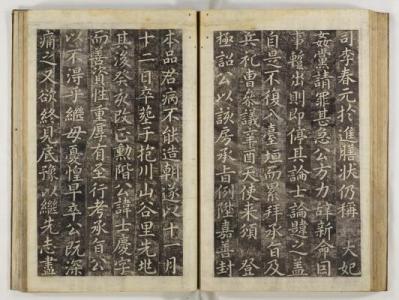 司李春元於進膳狀仍稱 大妃
姦黨請罪甚急公方力辭新命因
事暫出則即停其論士論韙之蓋
自是不復入臺垣而累拜承旨及
兵禮曹參議辛酉天使來頒 登
極詔公以該房承旨例陞嘉善封
本品君病不能造朝遂以十一月
十二日卒葬于抱川山谷里先兆
其後癸亥改正勳階公諱士慶字
而善資性重厚有至行考承旨公
以不得乎繼母憂惶早卒公既深
痛之又欲終見底豫以繼先志盡